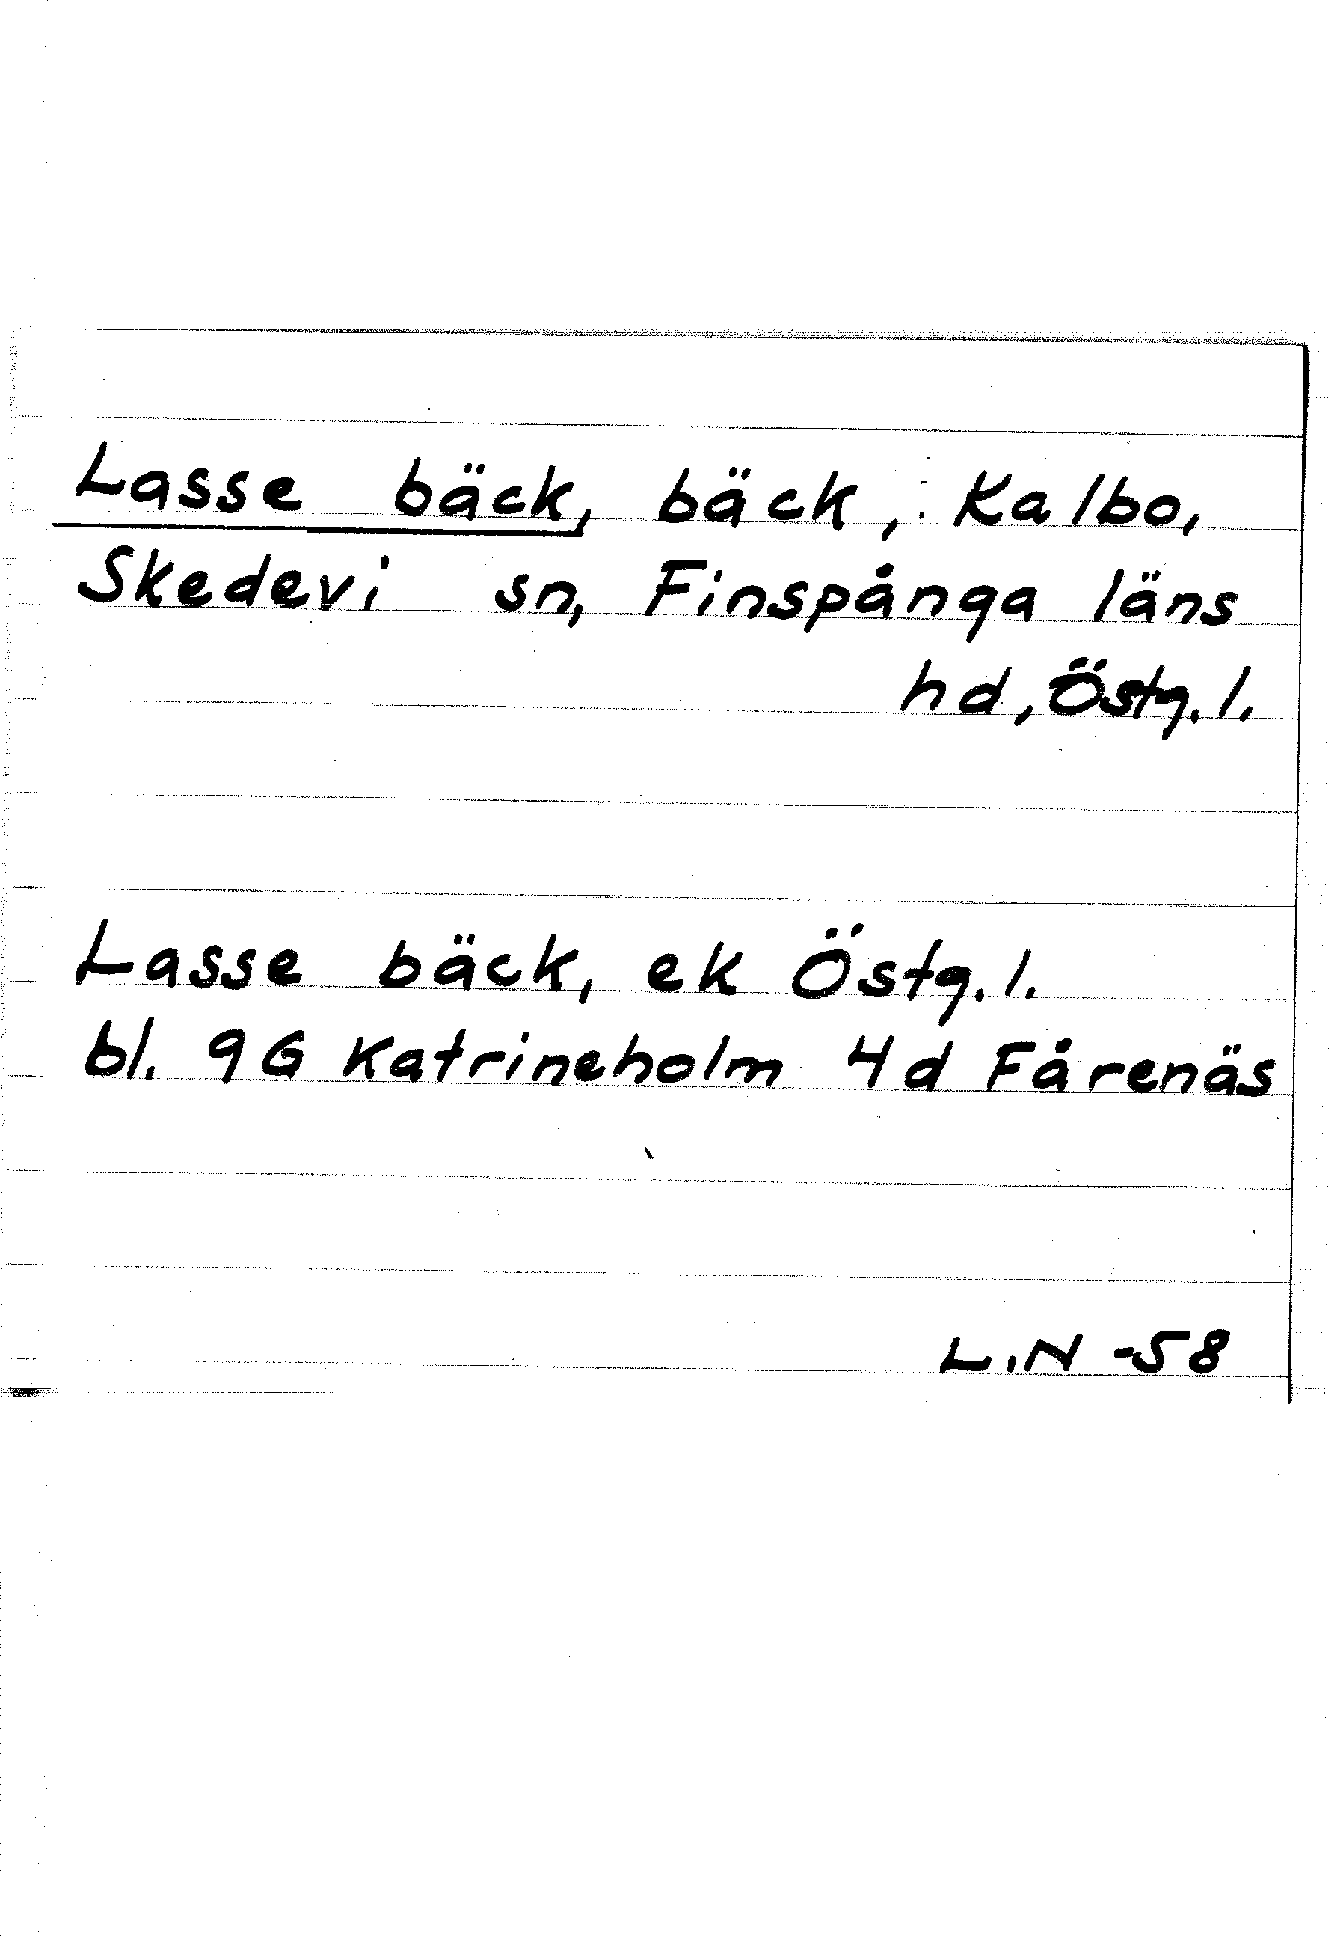 Lasse bäck, bäck, Kalbo,
Skedevi sn, Finspånga läns
hd, Östg.l.
Lasse bäck, ek Östg.l.
bl. 9G Katrineholm 4d Fårenäs
L.N -58